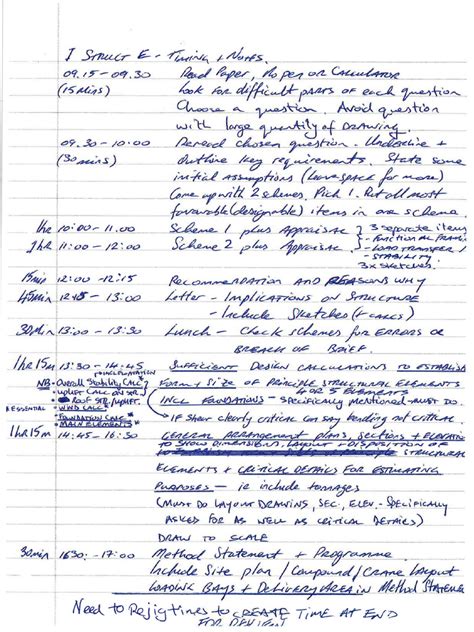 I STRUCT E - TIMING + NOTES.
09.15 - 09.30 Read Paper, No pen or CALCULATOR
(15 mins) Look for difficult parts of each question
Choose a question. Avoid question
with large quantity of DRAWING.
09.30 - 10:00 Reread chosen question. Underline +
(30 mins) Outline key requirements. State some
initial assumptions (leave space for more)
Come up with 2 schemes. Pick 1. Put all most
favourable (designable) items in one scheme.
1hr 10:00 - 11.00 Scheme 1 plus Appraisal } 3 separate items
1hr 11.00 - 12:00 Scheme 2 plus Appraisal - FUNCTIONAL FRAMING
- LOAD TRANSFER
- STABILITY
3x sketches.
15min 12:00 - 12:15 RECOMMENDATION AND REASONS WHY
45min 12:15 - 13:00 Letter - IMPLICATIONS ON STRUCTURE
- Include SKETCHES (+ CALCS)
30min 13:00 - 13:30 Lunch - Check schemes for ERRORS or
BREACH OF BRIEF.
1hr 15m 13:30 - 14:45 SUFFICIENT DESIGN CALCULATIONS TO ESTABLISH
NB - Overall Stability CALC FORM + SIZE OF PRINCIPLE STRUCTURAL ELEMENTS
UPLIFT CALC ON STR 4 or 5 ELEMENTS
ROOF STR/UPLIFT INCL FOUNDATIONS - Specifically mentioned - MUST DO.
WIND CALC
FOUNDATION CALC IF Shear clearly critical can say bending not critical
MAIN ELEMENTS
1hr 15m 14:45 - 16:30 GENERAL ARRANGEMENT PLANS, SECTIONS + ELEVATION
TO SHOW DIMENSIONS, LAYOUT + DISPOSITION OF
STRUCTURAL
ELEMENTS + CRITICAL DETAILS FOR ESTIMATING
PURPOSES - ie include tonnages
(MUST DO LAYOUT DRAWING, SEC, ELEV. - Specifically
ASKED FOR AS WELL AS CRITICAL DETAILS)
DRAW TO SCALE
30min 1630: - 17:00 Method Statement + Programme
Include Site plan / Compound / Crane Layout
LOADING BAYS + DELIVERY AREA in Method Statement
Need to Rejig times to CREATE TIME AT END
FOR REVIEW